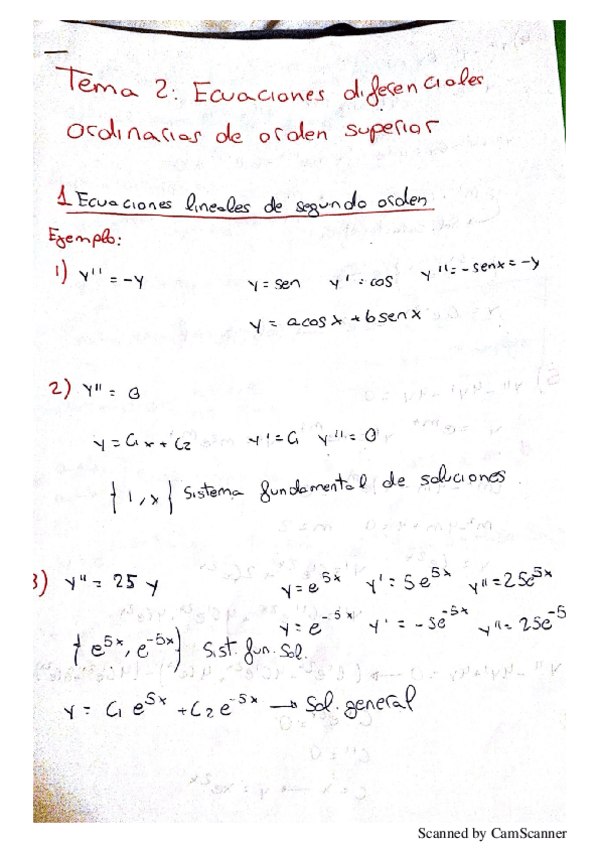 Tema 2: Ecuaciones diferenciales
ordinarias de orden superior
1 Ecuaciones lineales de segundo orden
Ejemplo:
1) y'' = -y y = sen y' = cos y'' = -senx = -y
y = a cos x + b sen x
2) y'' = 0
y = C₁x + C₂ y' = C₁ y'' = 0
{1, x} Sistema fundamental de soluciones
3) y'' = 25 y y = e^5x y' = 5e^5x y'' = 25e^5x
y = e^-5x y' = -5e^-5x y'' = 25e^-5
{e^5x, e^-5x} Sist. fun. Sol.
y = C₁ e^5x + C₂ e^-5x → Sol. general
Scanned by CamScanner